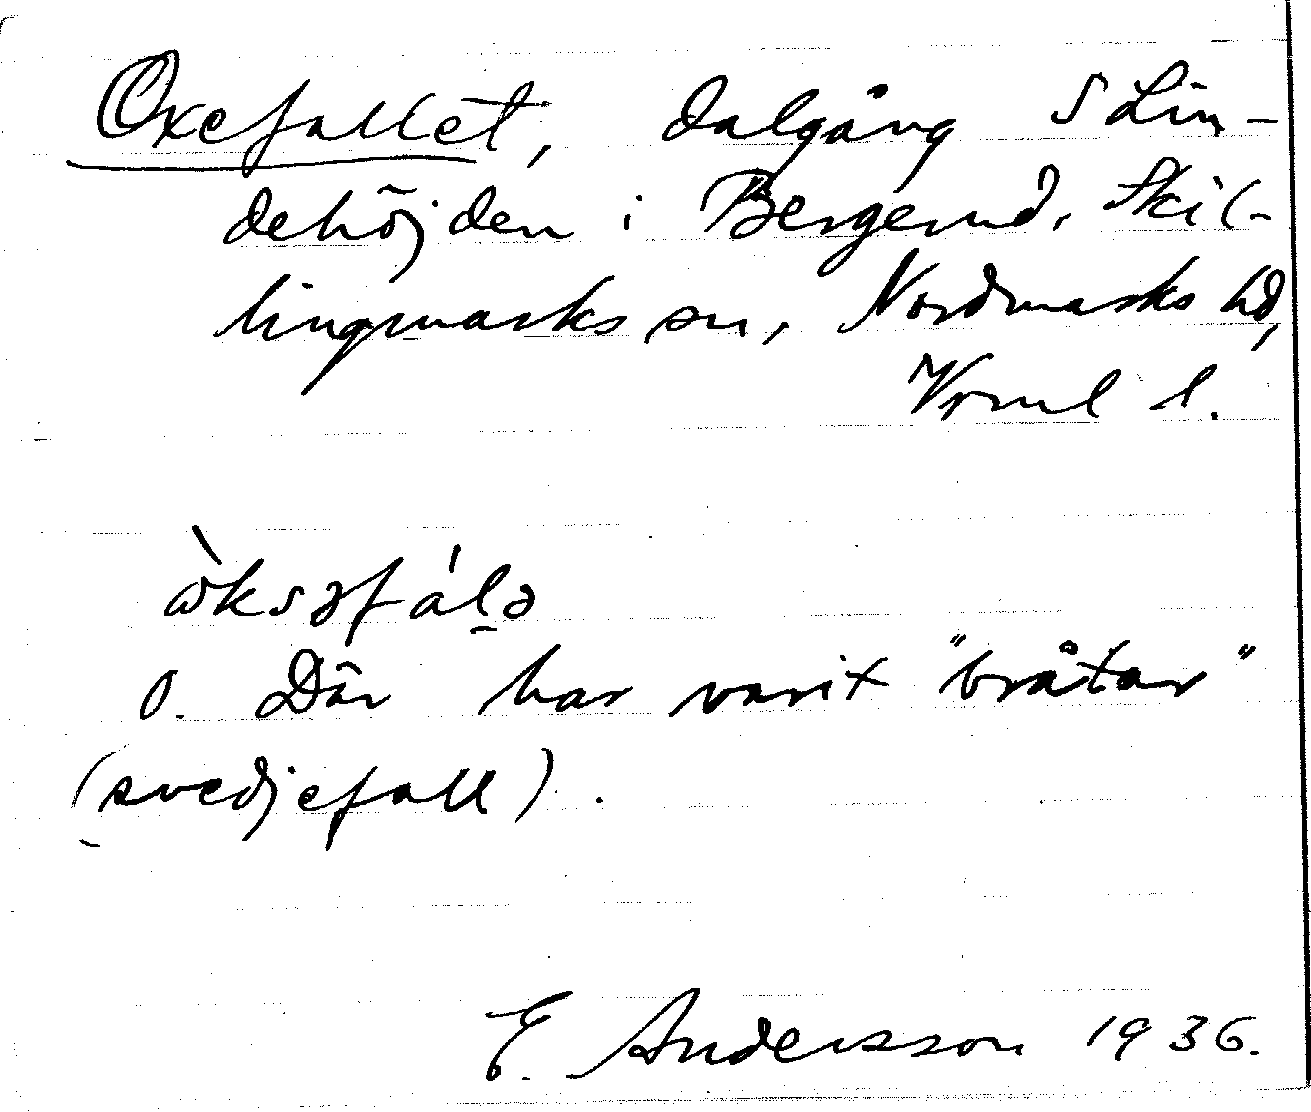 Oxefallet, dalgång S Lin-
dehöjden i Bergerud, Skil-
lingmarks sn, Nordmarks hd,
Vrml l.
ò̀ksəfál̠ə
O. Där har varit "bråtar"
(svedjefall).
E. Andersson 1936.